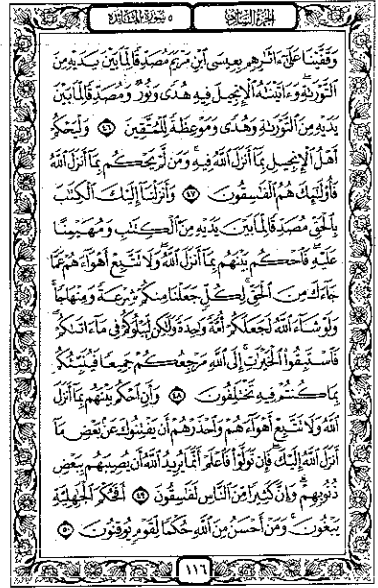 الجزء السادس ٥ سورة المائدة
وَقَفَّيْنَا عَلَىٰٓ ءَاثَٰرِهِم بِعِيسَى ٱبْنِ مَرْيَمَ مُصَدِّقًا لِّمَا بَيْنَ يَدَيْهِ مِنَ
ٱلتَّوْرَىٰةِ وَءَاتَيْنَٰهُ ٱلْإِنجِيلَ فِيهِ هُدًى وَنُورٌ وَمُصَدِّقًا لِّمَا بَيْنَ
يَدَيْهِ مِنَ ٱلتَّوْرَىٰةِ وَهُدًى وَمَوْعِظَةً لِّلْمُتَّقِينَ ٤٦ وَلْيَحْكُمْ
أَهْلُ ٱلْإِنجِيلِ بِمَآ أَنزَلَ ٱللَّهُ فِيهِ وَمَن لَّمْ يَحْكُم بِمَآ أَنزَلَ ٱللَّهُ
فَأُو۟لَٰٓئِكَ هُمُ ٱلْفَٰسِقُونَ ٤٧ وَأَنزَلْنَآ إِلَيْكَ ٱلْكِتَٰبَ
بِٱلْحَقِّ مُصَدِّقًا لِّمَا بَيْنَ يَدَيْهِ مِنَ ٱلْكِتَٰبِ وَمُهَيْمِنًا
عَلَيْهِ فَٱحْكُم بَيْنَهُم بِمَآ أَنزَلَ ٱللَّهُ وَلَا تَتَّبِعْ أَهْوَآءَهُمْ عَمَّا
جَآءَكَ مِنَ ٱلْحَقِّ لِكُلٍّ جَعَلْنَا مِنكُمْ شِرْعَةً وَمِنْهَاجًا
وَلَوْ شَآءَ ٱللَّهُ لَجَعَلَكُمْ أُمَّةً وَٰحِدَةً وَلَٰكِن لِّيَبْلُوَكُمْ فِي مَآ ءَاتَىٰكُمْ
فَٱسْتَبِقُوا۟ ٱلْخَيْرَٰتِ إِلَى ٱللَّهِ مَرْجِعُكُمْ جَمِيعًا فَيُنَبِّئُكُم
بِمَا كُنتُمْ فِيهِ تَخْتَلِفُونَ ٤٨ وَأَنِ ٱحْكُم بَيْنَهُم بِمَآ أَنزَلَ
ٱللَّهُ وَلَا تَتَّبِعْ أَهْوَآءَهُمْ وَٱحْذَرْهُمْ أَن يَفْتِنُوكَ عَنۢ بَعْضِ مَآ
أَنزَلَ ٱللَّهُ إِلَيْكَ فَإِن تَوَلَّوْا۟ فَٱعْلَمْ أَنَّمَا يُرِيدُ ٱللَّهُ أَن يُصِيبَهُم بِبَعْضِ
ذُنُوبِهِمْ وَإِنَّ كَثِيرًا مِّنَ ٱلنَّاسِ لَفَٰسِقُونَ ٤٩ أَفَحُكْمَ ٱلْجَٰهِلِيَّةِ
يَبْغُونَ وَمَنْ أَحْسَنُ مِنَ ٱللَّهِ حُكْمًا لِّقَوْمٍ يُوقِنُونَ ٥٠
١١٦